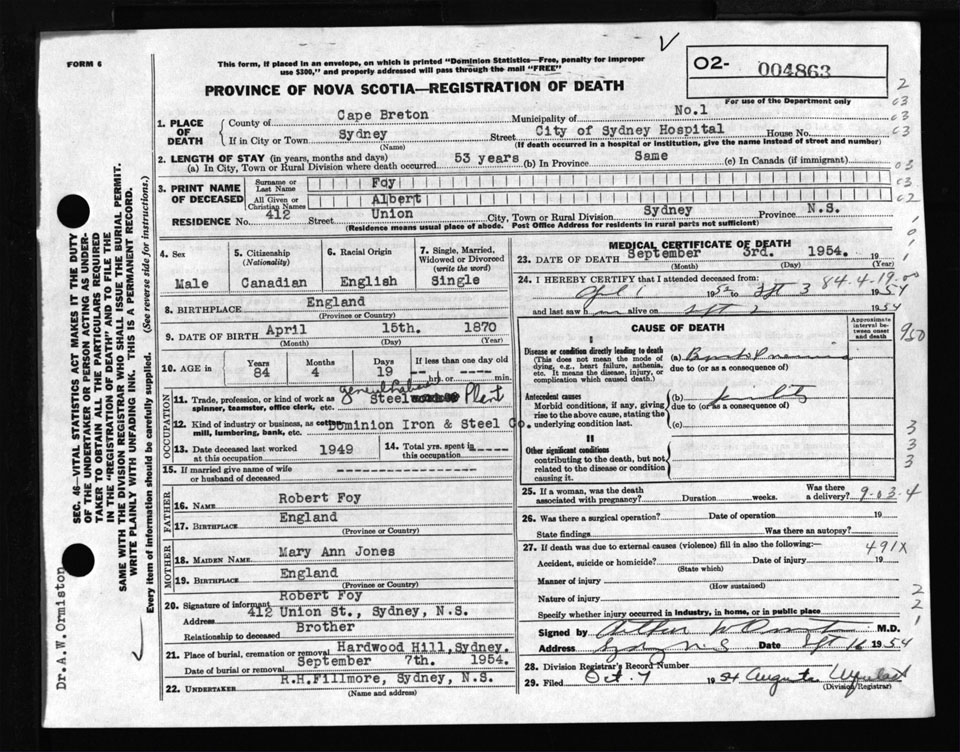 FORM 6
This form, if placed in an envelope, on which is printed "Dominion Statistics—Free, penalty for improper
use $300," and properly addressed will pass through the mail "FREE"
PROVINCE OF NOVA SCOTIA—REGISTRATION OF DEATH
O2- 004863
For use of the Department only
1. PLACE OF DEATH
County of Cape Breton Municipality of No.1
If in City or Town Sydney Street City of Sydney Hospital House No.
(Name) (If death occurred in a hospital or institution, give the name instead of street and number)
2. LENGTH OF STAY (in years, months and days)
(a) In City, Town or Rural Division where death occurred 53 years (b) In Province Same (c) In Canada (if immigrant)
3. PRINT NAME OF DECEASED
Surname or Last Name Foy
All Given or Christian Names Albert
RESIDENCE No. 412 Street Union City, Town or Rural Division Sydney Province N.S.
(Residence means usual place of abode. Post Office Address for residents in rural parts not sufficient)
4. Sex
Male
5. Citizenship
(Nationality)
Canadian
6. Racial Origin
English
7. Single, Married, Widowed or Divorced
(write the word)
Single
8. BIRTHPLACE England
(Province or Country)
9. DATE OF BIRTH April 15th. 1870
(Month) (Day) (Year)
10. AGE in
Years Months Days If less than one day old
84 4 19 hrs. or min.
OCCUPATION
11. Trade, profession, or kind of work as
spinner, teamster, office clerk, etc. Steel Plant
12. Kind of industry or business, as cotton
mill, lumbering, bank, etc. Dominion Iron & Steel Co.
13. Date deceased last worked
at this occupation 1949
14. Total yrs. spent in
this occupation
15. If married give name of wife
or husband of deceased
FATHER
16. Name Robert Foy
17. Birthplace England
(Province or Country)
MOTHER
18. Maiden Name Mary Ann Jones
19. Birthplace England
(Province or Country)
20. Signature of informant Robert Foy
Address 412 Union St., Sydney, N.S.
Relationship to deceased Brother
21. Place of burial, cremation or removal Hardwood Hill, Sydney.
Date of burial or removal September 7th. 1954.
22. Undertaker R.H.Fillmore, Sydney, N.S.
(Name and address)
MEDICAL CERTIFICATE OF DEATH
23. DATE OF DEATH September 3rd. 1954.
(Month) (Day) (Year)
24. I HEREBY CERTIFY that I attended deceased from: 84.4.19.00
April 1 1952 to Sept 3 1954
and last saw him alive on Sept 2 1954
CAUSE OF DEATH
Approximate interval between onset and death
I
Disease or condition directly leading to death
(This does not mean the mode of dying, e.g., heart failure, asthenia, etc. It means the disease, injury, or complication which caused death.)
(a) Broncho Pneumonia
due to (or as a consequence of)
Antecedent causes
Morbid conditions, if any, giving rise to the above cause, stating the underlying condition last.
(b) Senility
due to (or as a consequence of)
(c)
II
Other significant conditions
contributing to the death, but not related to the disease or condition causing it.
25. If a woman, was the death
associated with pregnancy? Duration weeks. Was there a delivery? 9-03-4
26. Was there a surgical operation? Date of operation 19
State findings Was there an autopsy?
27. If death was due to external causes (violence) fill in also the following:— 491X
Accident, suicide or homicide? Date of injury 19
(State which)
Manner of injury
(How sustained)
Nature of injury
Specify whether injury occurred in industry, in home, or in public place
Signed by M.D.
Sydney N S Date Sept 16 1954
28. Division Registrar's Record Number
29. Filed Oct. 7 1954 Augusta
(Division Registrar)
2
03
03
03
03
03
02
1
0
1
950
3
3
3
2
2
1
SEC. 46—VITAL STATISTICS ACT MAKES IT THE DUTY
OF THE UNDERTAKER OR PERSON ACTING AS UNDER-
TAKER TO OBTAIN ALL THE PARTICULARS REQUIRED
IN THE "REGISTRATION OF DEATH" AND TO FILE THE
SAME WITH THE DIVISION REGISTRAR WHO SHALL ISSUE THE BURIAL PERMIT.
WRITE PLAINLY WITH UNFADING INK. THIS IS A PERMANENT RECORD.
Every item of information should be carefully supplied. (See reverse side for instructions.)
Dr. A.W. Ormiston